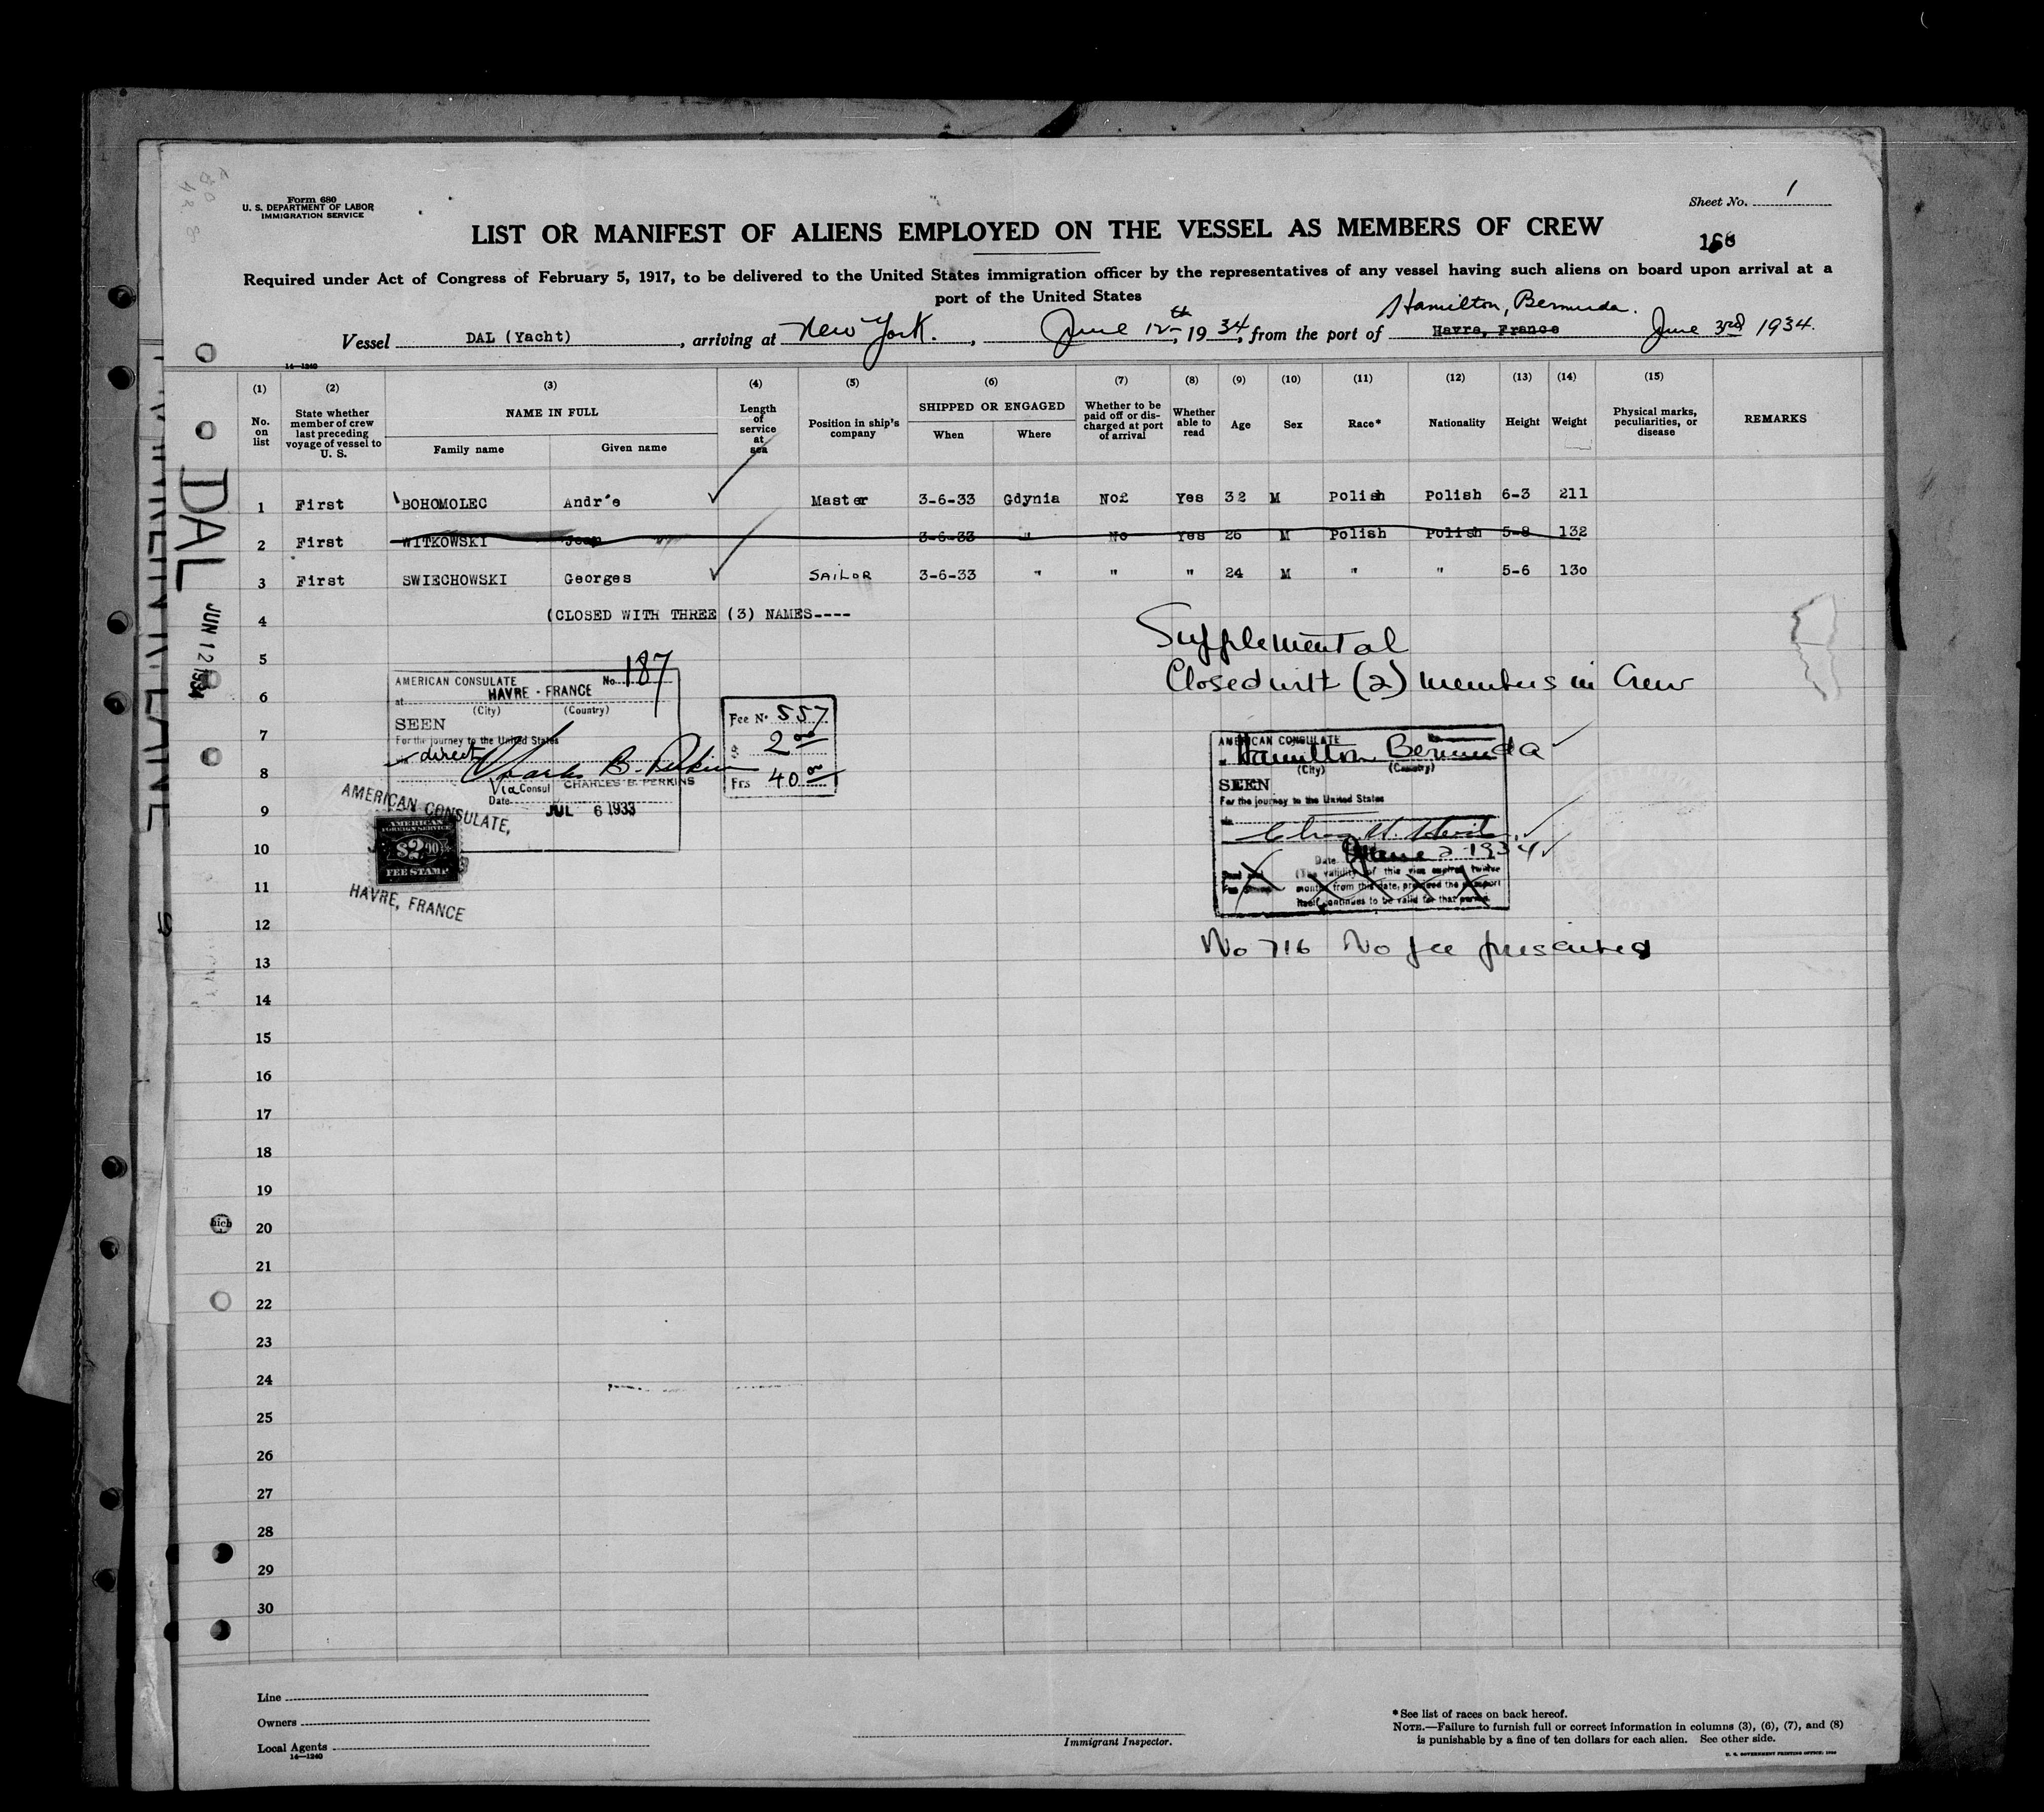 Form 680
U. S. DEPARTMENT OF LABOR
IMMIGRATION SERVICE
Sheet No. 1
LIST OR MANIFEST OF ALIENS EMPLOYED ON THE VESSEL AS MEMBERS OF CREW
Required under Act of Congress of February 5, 1917, to be delivered to the United States immigration officer by the representatives of any vessel having such aliens on board upon arrival at a
port of the United States
Hamilton, Bermuda.
Vessel DAL (Yacht), arriving at New York., June 12th, 1934, from the port of Havre, France June 3rd 1934.
14—1240
(1) (2) (3) (4) (5) (6) (7) (8) (9) (10) (11) (12) (13) (14) (15)
No. on list
State whether member of crew last preceding voyage of vessel to U. S.
NAME IN FULL
Family name
Given name
Length of service at sea
Position in ship's company
SHIPPED OR ENGAGED
When
Where
Whether to be paid off or discharged at port of arrival
Whether able to read
Age
Sex
Race*
Nationality
Height
Weight
Physical marks, peculiarities, or disease
REMARKS
1 First BOHOMOLEC Andr'e Master 3-6-33 Gdynia No Yes 32 M Polish Polish 6-3 211
2 First WITKOWSKI Jean 3-6-33 " No Yes 26 M Polish Polish 5-8 132
3 First SWIECHOWSKI Georges SAILOR 3-6-33 " " " 24 M " " 5-6 130
4 (CLOSED WITH THREE (3) NAMES----
Supplemental
Closed with (2) members in Crew
5
6
7
8
9
10
11
12
13
14
15
16
17
18
19
20
21
22
23
24
25
26
27
28
29
30
AMERICAN CONSULATE No. 187
at HAVRE - FRANCE
(City) (Country)
SEEN
For the journey to the United States
via direct
Charles B. Perkins
Vice Consul CHARLES B. PERKINS
Date JUL 6 1933
Fee No. 557
$ 2 00
Frs 40 00
AMERICAN CONSULATE,
AMERICAN
FOREIGN SERVICE
$2.00
FEE STAMP
HAVRE, FRANCE
AMERICAN CONSULATE
Hamilton Bermuda
(City) (Country)
SEEN
For the journey to the United States
via
Date June 2 1934
(The validity of this visa expires twelve
months from this date, provided the passport
itself continues to be valid for that period.
No 716 No fee presented
DAL
JUN 12 1934
hich
Line
Owners
Local Agents
14—1240
Immigrant Inspector.
*See list of races on back hereof.
NOTE.—Failure to furnish full or correct information in columns (3), (6), (7), and (8)
is punishable by a fine of ten dollars for each alien. See other side.